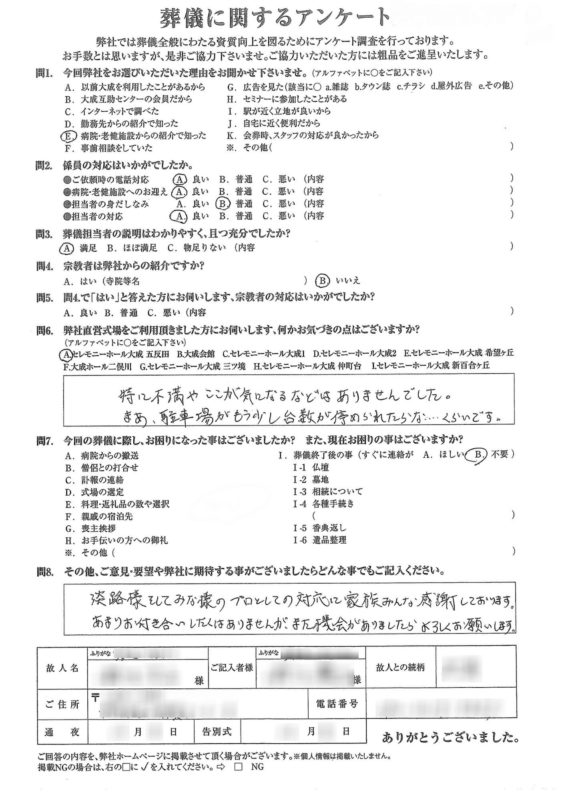 葬儀に関するアンケート
弊社では葬儀全般にわたる資質向上を図るためにアンケート調査を行っております。
お手数とは思いますが、是非ご協力下さいませ。ご協力いただいた方には粗品をご進呈いたします。
問1. 今回弊社をお選びいただいた理由をお聞かせ下さいませ。(アルファベットに○をご記入下さい)
A. 以前大成を利用したことがあるから G. 広告を見た(該当に○ a.雑誌 b.タウン誌 c.チラシ d.屋外広告 e.その他)
B. 大成互助センターの会員だから H. セミナーに参加したことがある
C. インターネットで調べた I. 駅が近く立地が良いから
D. 勤務先からの紹介で知った J. 自宅に近く便利だから
E. 病院・老健施設からの紹介で知った K. 会葬時、スタッフの対応が良かったから
F. 事前相談をしていた ※. その他( )
問2. 係員の対応はいかがでしたか。
●ご依頼時の電話対応 A. 良い B. 普通 C. 悪い (内容 )
●病院・老健施設へのお迎え A. 良い B. 普通 C. 悪い (内容 )
●担当者の身だしなみ A. 良い B. 普通 C. 悪い (内容 )
●担当者の対応 A. 良い B. 普通 C. 悪い (内容 )
問3. 葬儀担当者の説明はわかりやすく、且つ充分でしたか?
A. 満足 B. ほぼ満足 C. 物足りない (内容 )
問4. 宗教者は弊社からの紹介ですか?
A. はい (寺院等名 ) B. いいえ
問5. 問4.で「はい」と答えた方にお伺いします、宗教者の対応はいかがでしたか?
A. 良い B. 普通 C. 悪い (内容 )
問6. 弊社直営式場をご利用頂きました方にお伺いします、何かお気づきの点はございますか?
(アルファベットに○をご記入下さい)
A.セレモニーホール大成 五反田 B.大成会館 C.セレモニーホール大成1 D.セレモニーホール大成2 E.セレモニーホール大成 希望ヶ丘
F.大成ホール二俣川 G.セレモニーホール大成 三ツ境 H.セレモニーホール大成 仲町台 I.セレモニーホール大成 新百合ヶ丘
特に不満やここが気になるなどはありませんでした。
まあ、駐車場がもう少し台数が停められたらな…くらいです。
問7. 今回の葬儀に際し、お困りになった事はございましたか? また、現在お困りの事はございますか?
A. 病院からの搬送 I. 葬儀終了後の事 (すぐに連絡が A. ほしい B. 不要)
B. 僧侶との打合せ I-1 仏壇
C. 訃報の連絡 I-2 墓地
D. 式場の選定 I-3 相続について
E. 料理・返礼品の数や選択 I-4 各種手続き
F. 親戚の宿泊先 ( )
G. 喪主挨拶 I-5 香典返し
H. お手伝いの方への御礼 I-6 遺品整理
※. その他 ( )
問8. その他、ご意見・要望や弊社に期待する事がございましたらどんな事でもご記入ください。
淡路様そしてみな様のプロとしての対応に家族みんな感謝しております。
あまりお付き合いしたくはありませんがまた機会がありましたらよろしくお願いします。
ふりがな ふりがな
故人名 様 ご記入者様 様 故人との続柄
ご住所 〒 電話番号
通夜 月 日 告別式 月 日 ありがとうございました。
ご回答の内容を、弊社ホームページに掲載させて頂く場合がございます。※個人情報は掲載いたしません。
掲載NGの場合は、右の□に✓を入れてください。⇨ □ NG